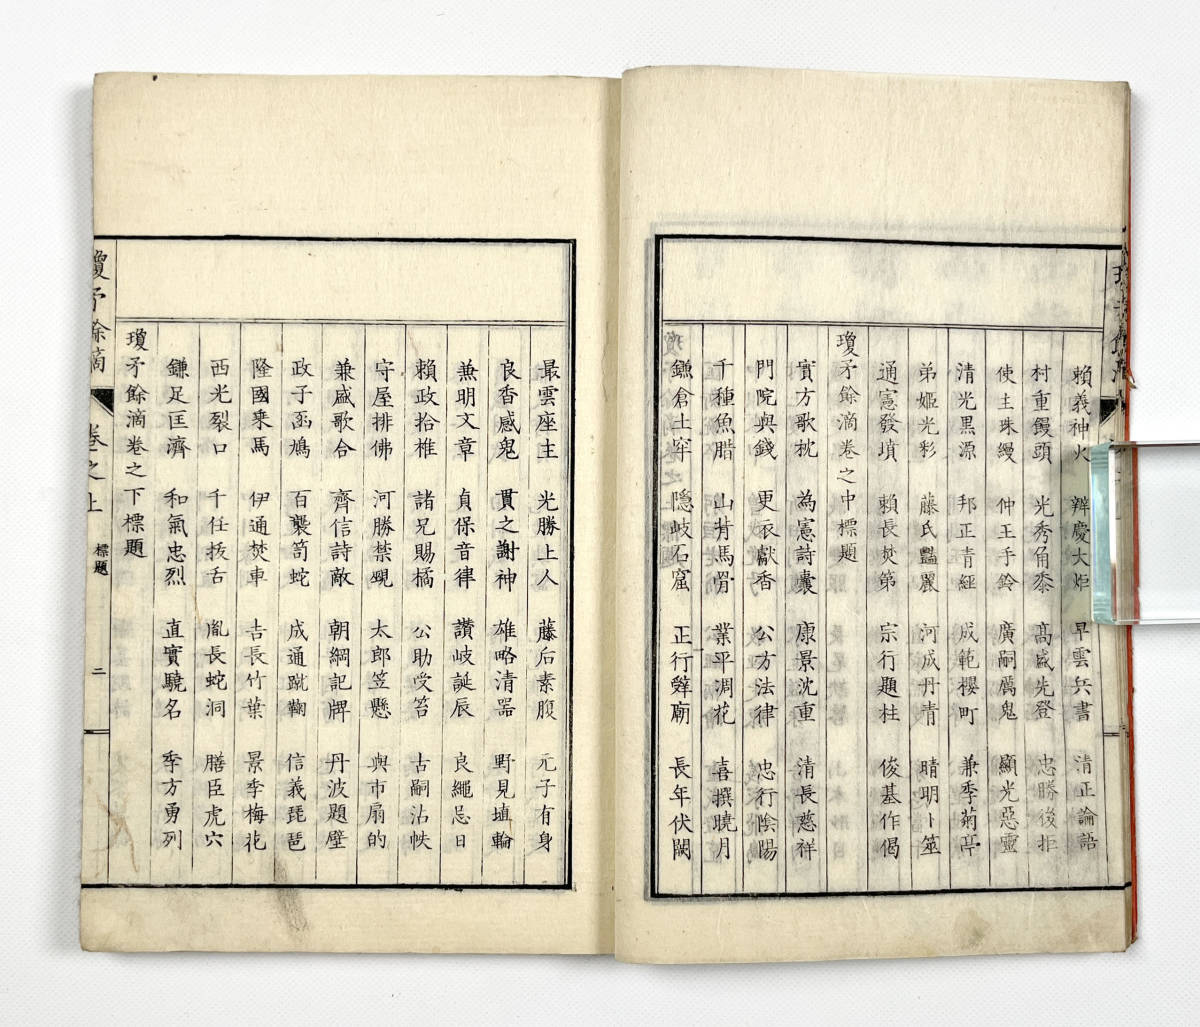 賴義神火 辨慶大炬 早雲兵書 清正論語
村重饅頭 光秀角黍 高盛先登 忠勝後拒
使主珠縵 仲王手鈴 廣嗣厲鬼 顯光惡靈
清光黒源 邦正青經 成範櫻町 兼季菊亭
弟姬光彩 藤氏豔麗 河成丹青 晴明卜筮
通憲發墳 賴長焚第 宗行題柱 俊基作偈
瓊矛餘滴卷之中標題
實方歌枕 為憲詩囊 康景沈重 清長慈祥
門院與錢 更衣獻香 公方法律 忠行陰陽
千種魚腊 山背馬骨 業平凋花 喜撰曉月
鎌倉土牢 隠岐石窟 正行辭廟 長年伏闕
最雲座主 光勝上人 藤后素腹 元子有身
良香感鬼 貫之謝神 雄略清器 野見埴輪
兼明文章 貞保音律 讚岐誕辰 良繩忌日
賴政拾椎 諸兄賜橘 公助受笞 古嗣沾帙
守屋排佛 河勝禁覡 太郎笠懸 與市扇的
兼盛歌合 齊信詩敵 朝綱記牌 丹波題壁
政子函鳩 百襲笥蛇 成通蹴鞠 信義琵琶
隆國乘馬 伊通焚車 吉長竹葉 景季梅花
西光裂口 千任拔舌 胤長蛇洞 膳臣虎穴
鎌足匡濟 和氣忠烈 直實驍名 季方勇列
瓊矛餘滴卷之下標題
瓊矛餘滴 卷之上 標題 二